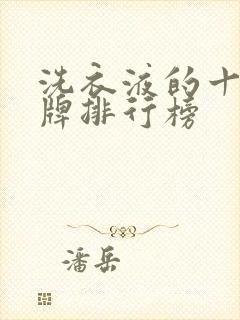 洗衣液的十
牌排行榜
潘岳